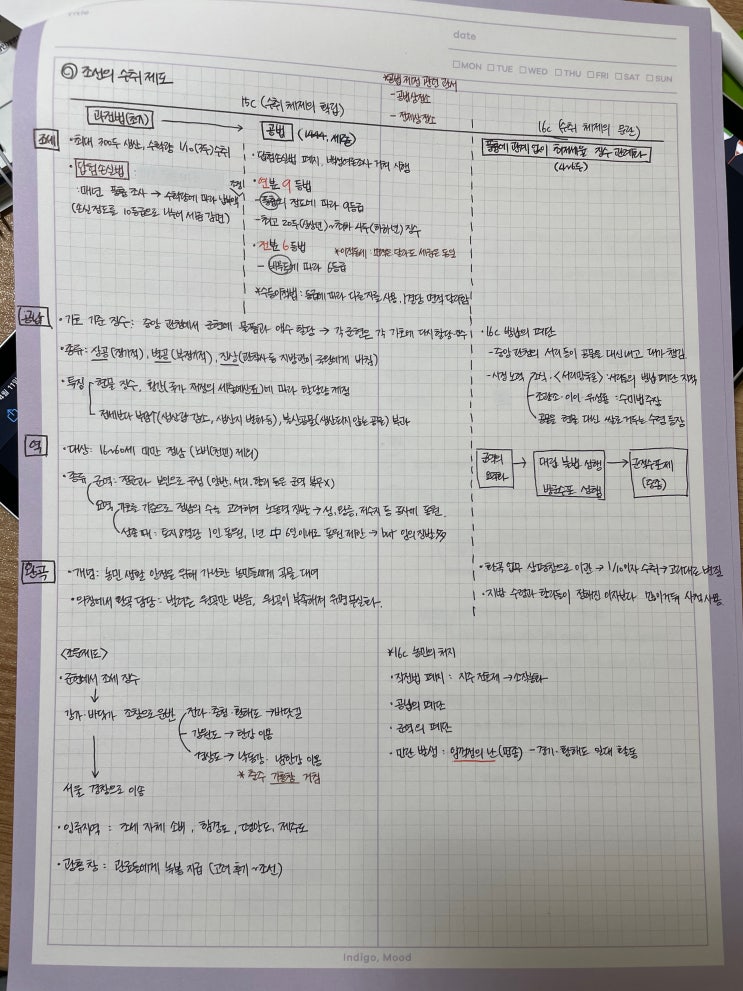 date
□MON □TUE □WED □THU □FRI □SAT □SUN
조선의 수취 제도
*공법 제정 관련 관서
- 공법상정소
- 전제상정소
15c (수취 체제의 확립)
16c (수취 체제의 문란)
조세
과전법(초기)
· 최대 300두 생산, 수확량 1/10(30두)수취
· 답험손실법
: 매년 풍흉 조사 → 수확량에 따라 납부액
(손실 정도를 10등급으로 나누어 세금 감면)
공법 (1444, 세종)
· 답험손실법 폐지, 백성여론조사 거쳐 시행
· 연분 9등법
- 풍흉의 정도에 따라 9등급
- 최고 20두(상상년)~최하 4두(하하년) 징수
· 전분 6등법
- 비옥도에 따라 6등급
*이적동세 : 면적은 달라도 세금은 동일
*수등이척법 : 등급에 따라 다른 자를 사용, 1결당 면적 달라짐
풍흉에 관계 없이 최저세율 징수 관례화
(4~6두)
공납
· 가호 기준 징수: 중앙 관청에서 군현에 물품과 액수 할당 → 각 군현은 각 가호에 다시 할당·징수
· 종류: 상공(정기적), 별공(부정기적), 진상(관찰사 등 지방관이 국왕에게 바침)
· 특징
현물 징수, 횡간(국가 재정의 세출예산표)에 따라 할당량 책정
전세보다 부담↑(생산량 감소, 생산지 변화 등), 불산공물(생산되지 않는 공물) 부과
· 16c 방납의 폐단
- 중앙 관청의 서리들이 공물을 대신 내고 대가 챙김
- 시정 노력
조식 · <서리망국론> : 서리들의 방납 폐단 지적
조광조·이이·유성룡 : 수미법 주장
공물을 현물 대신 쌀로 거두는 수령 등장
역
· 대상: 16~60세 미만 정남 (노비(천민) 제외)
· 종류
군역 : 정군과 보인으로 구성 (양반, 서리, 향리 등은 군역 복무X)
요역 : 가호를 기준으로 정남의 수를 고려하여 노동력 징발 → 성, 왕릉, 저수지 등 공사에 동원
성종 때 : 토지 8결당 1인 동원, 1년 中 6일 이내로 동원 제한 → but 임의 징발 多
군역의 요역화 → 대립 불법 성행
방군수포 성행 → 군적수포제
(중종)
환곡
· 개념: 농민 생활 안정을 위해 가난한 농민들에게 곡물 대여
· 의창에서 환곡 담당 : 백성은 원곡만 반납, 원곡이 부족해져 유명무실화.
· 환곡 업무 상평창으로 이관 → 1/10 이자 수취 → 고리대로 변질
· 지방 수령과 향리들이 정해진 이자보다 많이 거둬 사적 사용
<조운제도>
· 군현에서 조세 징수
↓
강가·바닷가 조창으로 운반
전라·충청·황해도 → 바닷길
강원도 → 한강 이용
경상도 → 낙동강·남한강 이용
*충주 가흥창 거침
↓
서울 경창으로 이송
· 잉류지역 : 조세 자체 소비, 함경도, 평안도, 제주도
· 광흥창 : 관료들에게 녹봉 지급 (고려 후기~조선)
*16c 농민의 처지
· 직전법 폐지 : 지주 전호제 → 소작농화
· 공납의 폐단
· 군역의 폐단
· 민란 발생 : 임꺽정의 난(명종) - 경기·황해도 일대 활동
Indigo, Mood